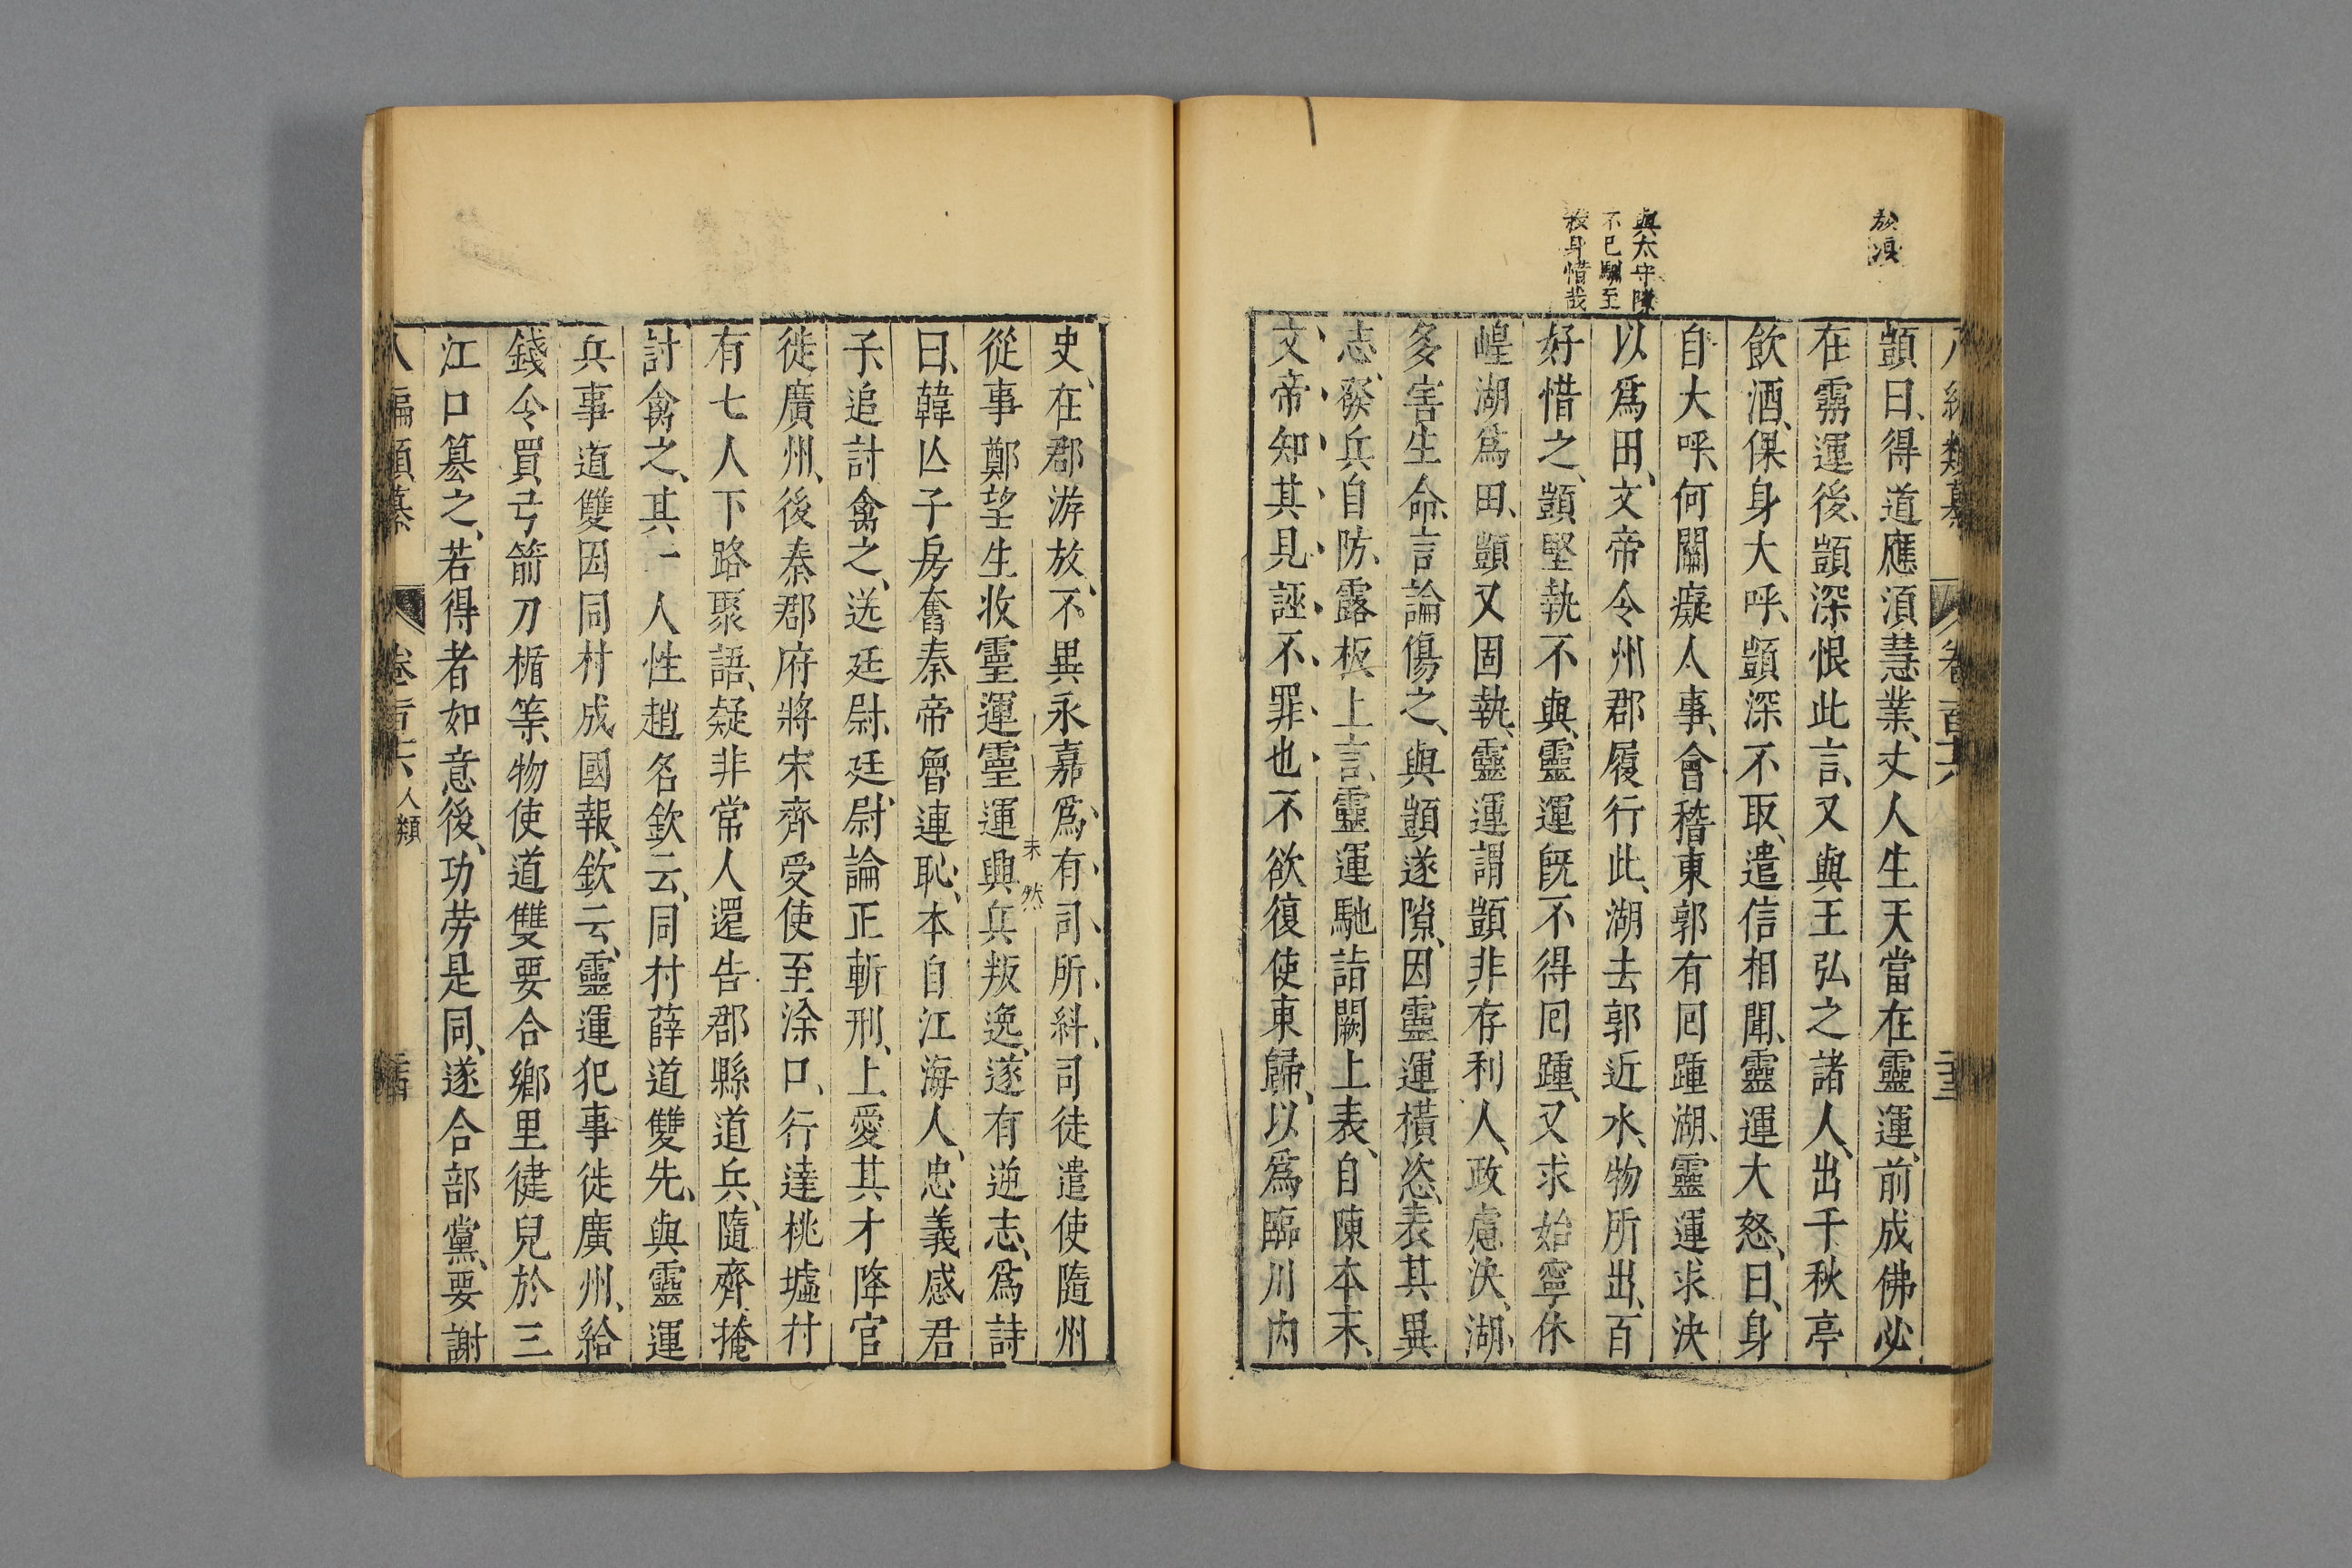 八編類纂 卷一百六 三十三
放誕
顗曰、得道應須慧業、丈人生天當在靈運前、成佛必
在靈運後、顗深恨此言、又與王弘之諸人、出千秋亭
飲酒、倮身大呼、顗深不取、遣信相聞、靈運大怒、曰、身
自大呼、何關癡人事、會稽東郭有回踵湖、靈運求決
與太守隙
不已馴至
殺身惜哉
以爲田、文帝令州郡履行此、湖去郭近水、物所出、百
好惜之、顗堅執不與、靈運旣不得回踵、又求始寧休
崲湖爲田、顗又固執、靈運謂顗非存利人、政慮決、湖
多害生命、言論傷之、與顗遂隙、因靈運橫恣、表其異
志、發兵自防、露板上言、靈運馳詣闕上表、自陳本末、
文帝知其見誣不罪也不欲復使東歸、以爲臨川内
史、在郡游放、不異永嘉爲有司所糾、司徒遣使隨州
未然
從事鄭望生收靈運靈運興兵叛逸、遂有逆志、爲詩
曰、韓亾子房奮秦帝魯連恥、本自江海人、忠義感君
子、追討禽之、送廷尉、廷尉論正斬刑、上愛其才降官
徙廣州、後秦郡府將宋齊受使至涂口、行達桃墟村
有七人下路聚語、疑非常人還告郡縣遣兵、隨齊掩
討禽之、其一人性趙名欽云、同村薛道雙先、與靈運
兵事道雙因同村成國報、欽云、靈運犯事徙廣州、給
錢令買弓箭刀楯等、物使道雙要合鄉里健兒於三
江口篡之、若得者如意後、功劳是同、遂合部黨、要謝
八編類纂 卷一百六 人類 三十四